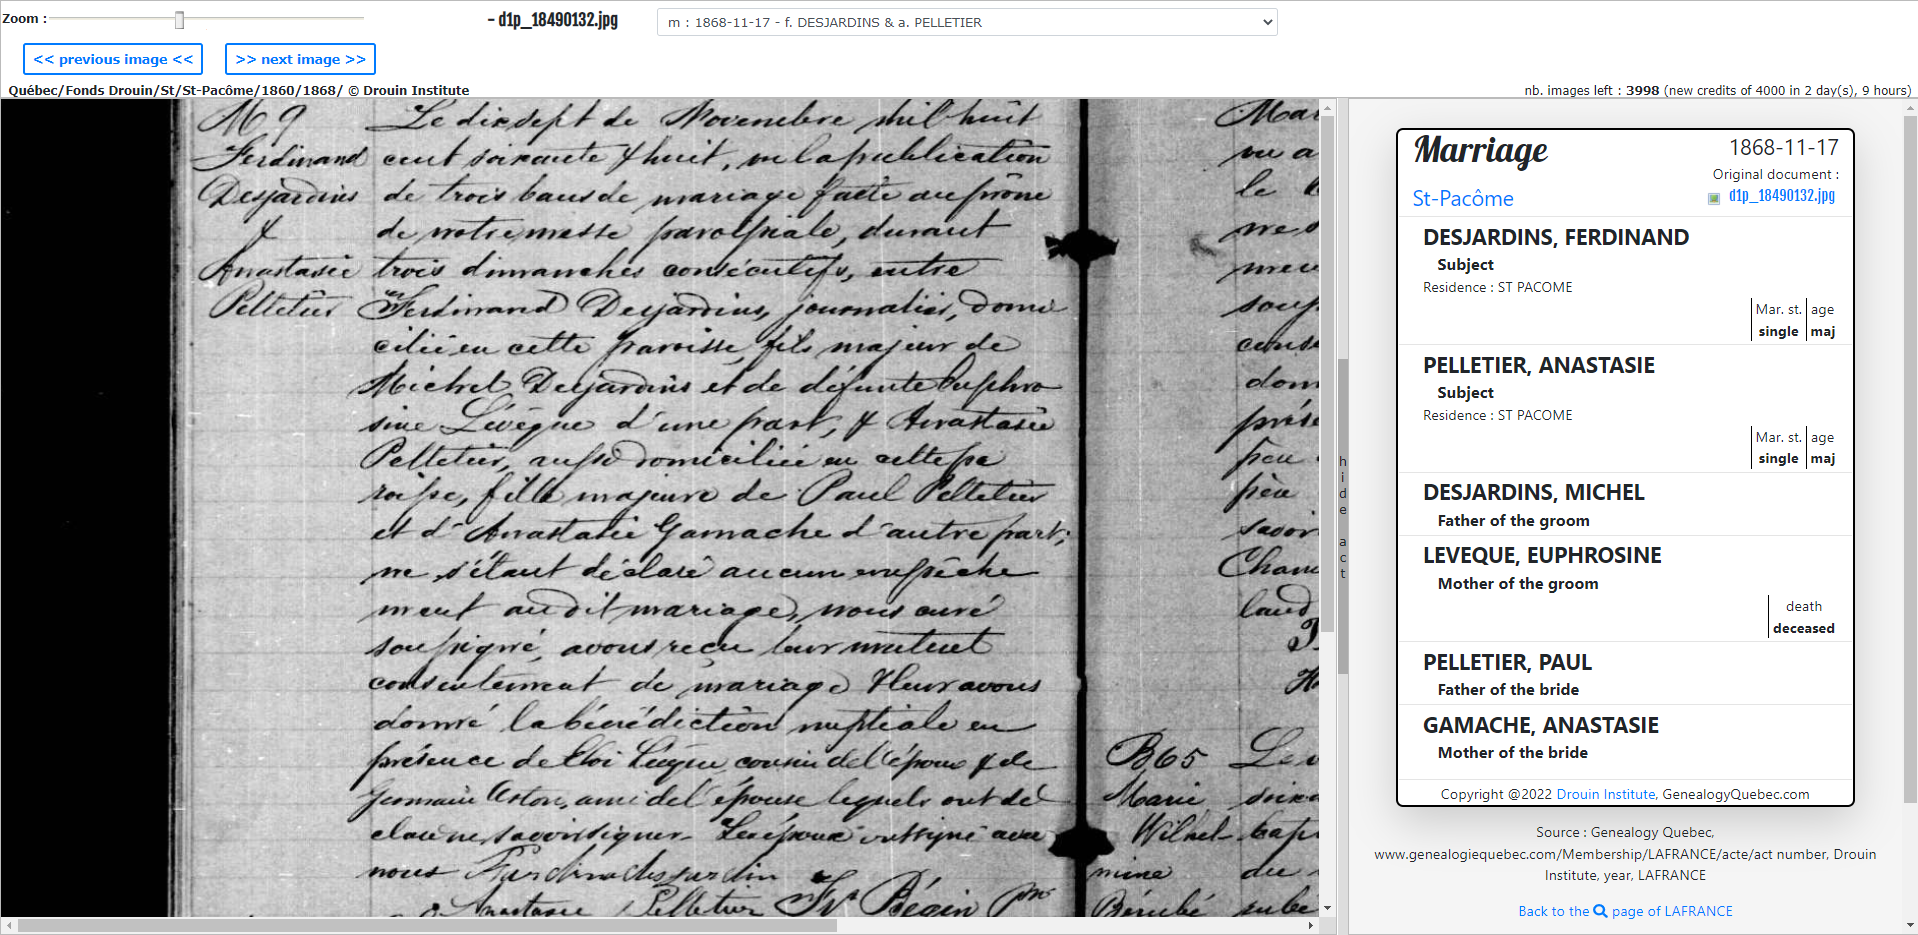 Zoom :
- d1p_18490132.jpg
m : 1868-11-17 - f. DESJARDINS & a. PELLETIER
<< previous image <<
>> next image >>
Québec/Fonds Drouin/St/St-Pacôme/1860/1868/ © Drouin Institute
nb. images left : 3998 (new credits of 4000 in 2 day(s), 9 hours)
M 9
Ferdinand
Desjardins
&
Anastasie
Pelletier
Le dixsept de Novembre mil huit
cent soixante & huit, vu la publication
de trois bans de mariage faite au prône
de notre messe paroissiale, durant
trois dimanches consécutifs, entre
Ferdinand Desjardins, journalier, domi
cilié en cette paroisse, fils majeur de
Michel Desjardins et de défunte Euphro
sine Lévêque d'une part, & Anastasie
Pelletier, aussi domiciliée en cette pa
roisse, fille majeure de Paul Pelletier
et d'Anastasie Gamache d'autre part;
ne s'étant déclaré aucun empêche
ment audit mariage, nous curé
soussigné, avons reçu leur mutuel
consentement de mariage & leur avons
donné la bénédiction nuptiale en
présence de Eloi Lévêque cousin de l'époux & de
Germain ami de l'épouse lesquels ont dé
claré ne savoir signer. avec
nous Ferdina desjardin
Anastasie Pelletier Bégin Ptre
Mar
vu a
le
mes
meu
souss
conse
dom
prése
père
père
savoir
Cham
laud
B65
Marie
Wilhel
mine
Bérubé
Le v
soixa
bapt
du
rube
hide act
Marriage
1868-11-17
Original document :
St-Pacôme
d1p_18490132.jpg
DESJARDINS, FERDINAND
Subject
Residence : ST PACOME
Mar. st. age
single maj
PELLETIER, ANASTASIE
Subject
Residence : ST PACOME
Mar. st. age
single maj
DESJARDINS, MICHEL
Father of the groom
LEVEQUE, EUPHROSINE
Mother of the groom
death
deceased
PELLETIER, PAUL
Father of the bride
GAMACHE, ANASTASIE
Mother of the bride
Copyright @2022 Drouin Institute, GenealogyQuebec.com
Source : Genealogy Quebec,
www.genealogiequebec.com/Membership/LAFRANCE/acte/act number, Drouin
Institute, year, LAFRANCE
Back to the page of LAFRANCE